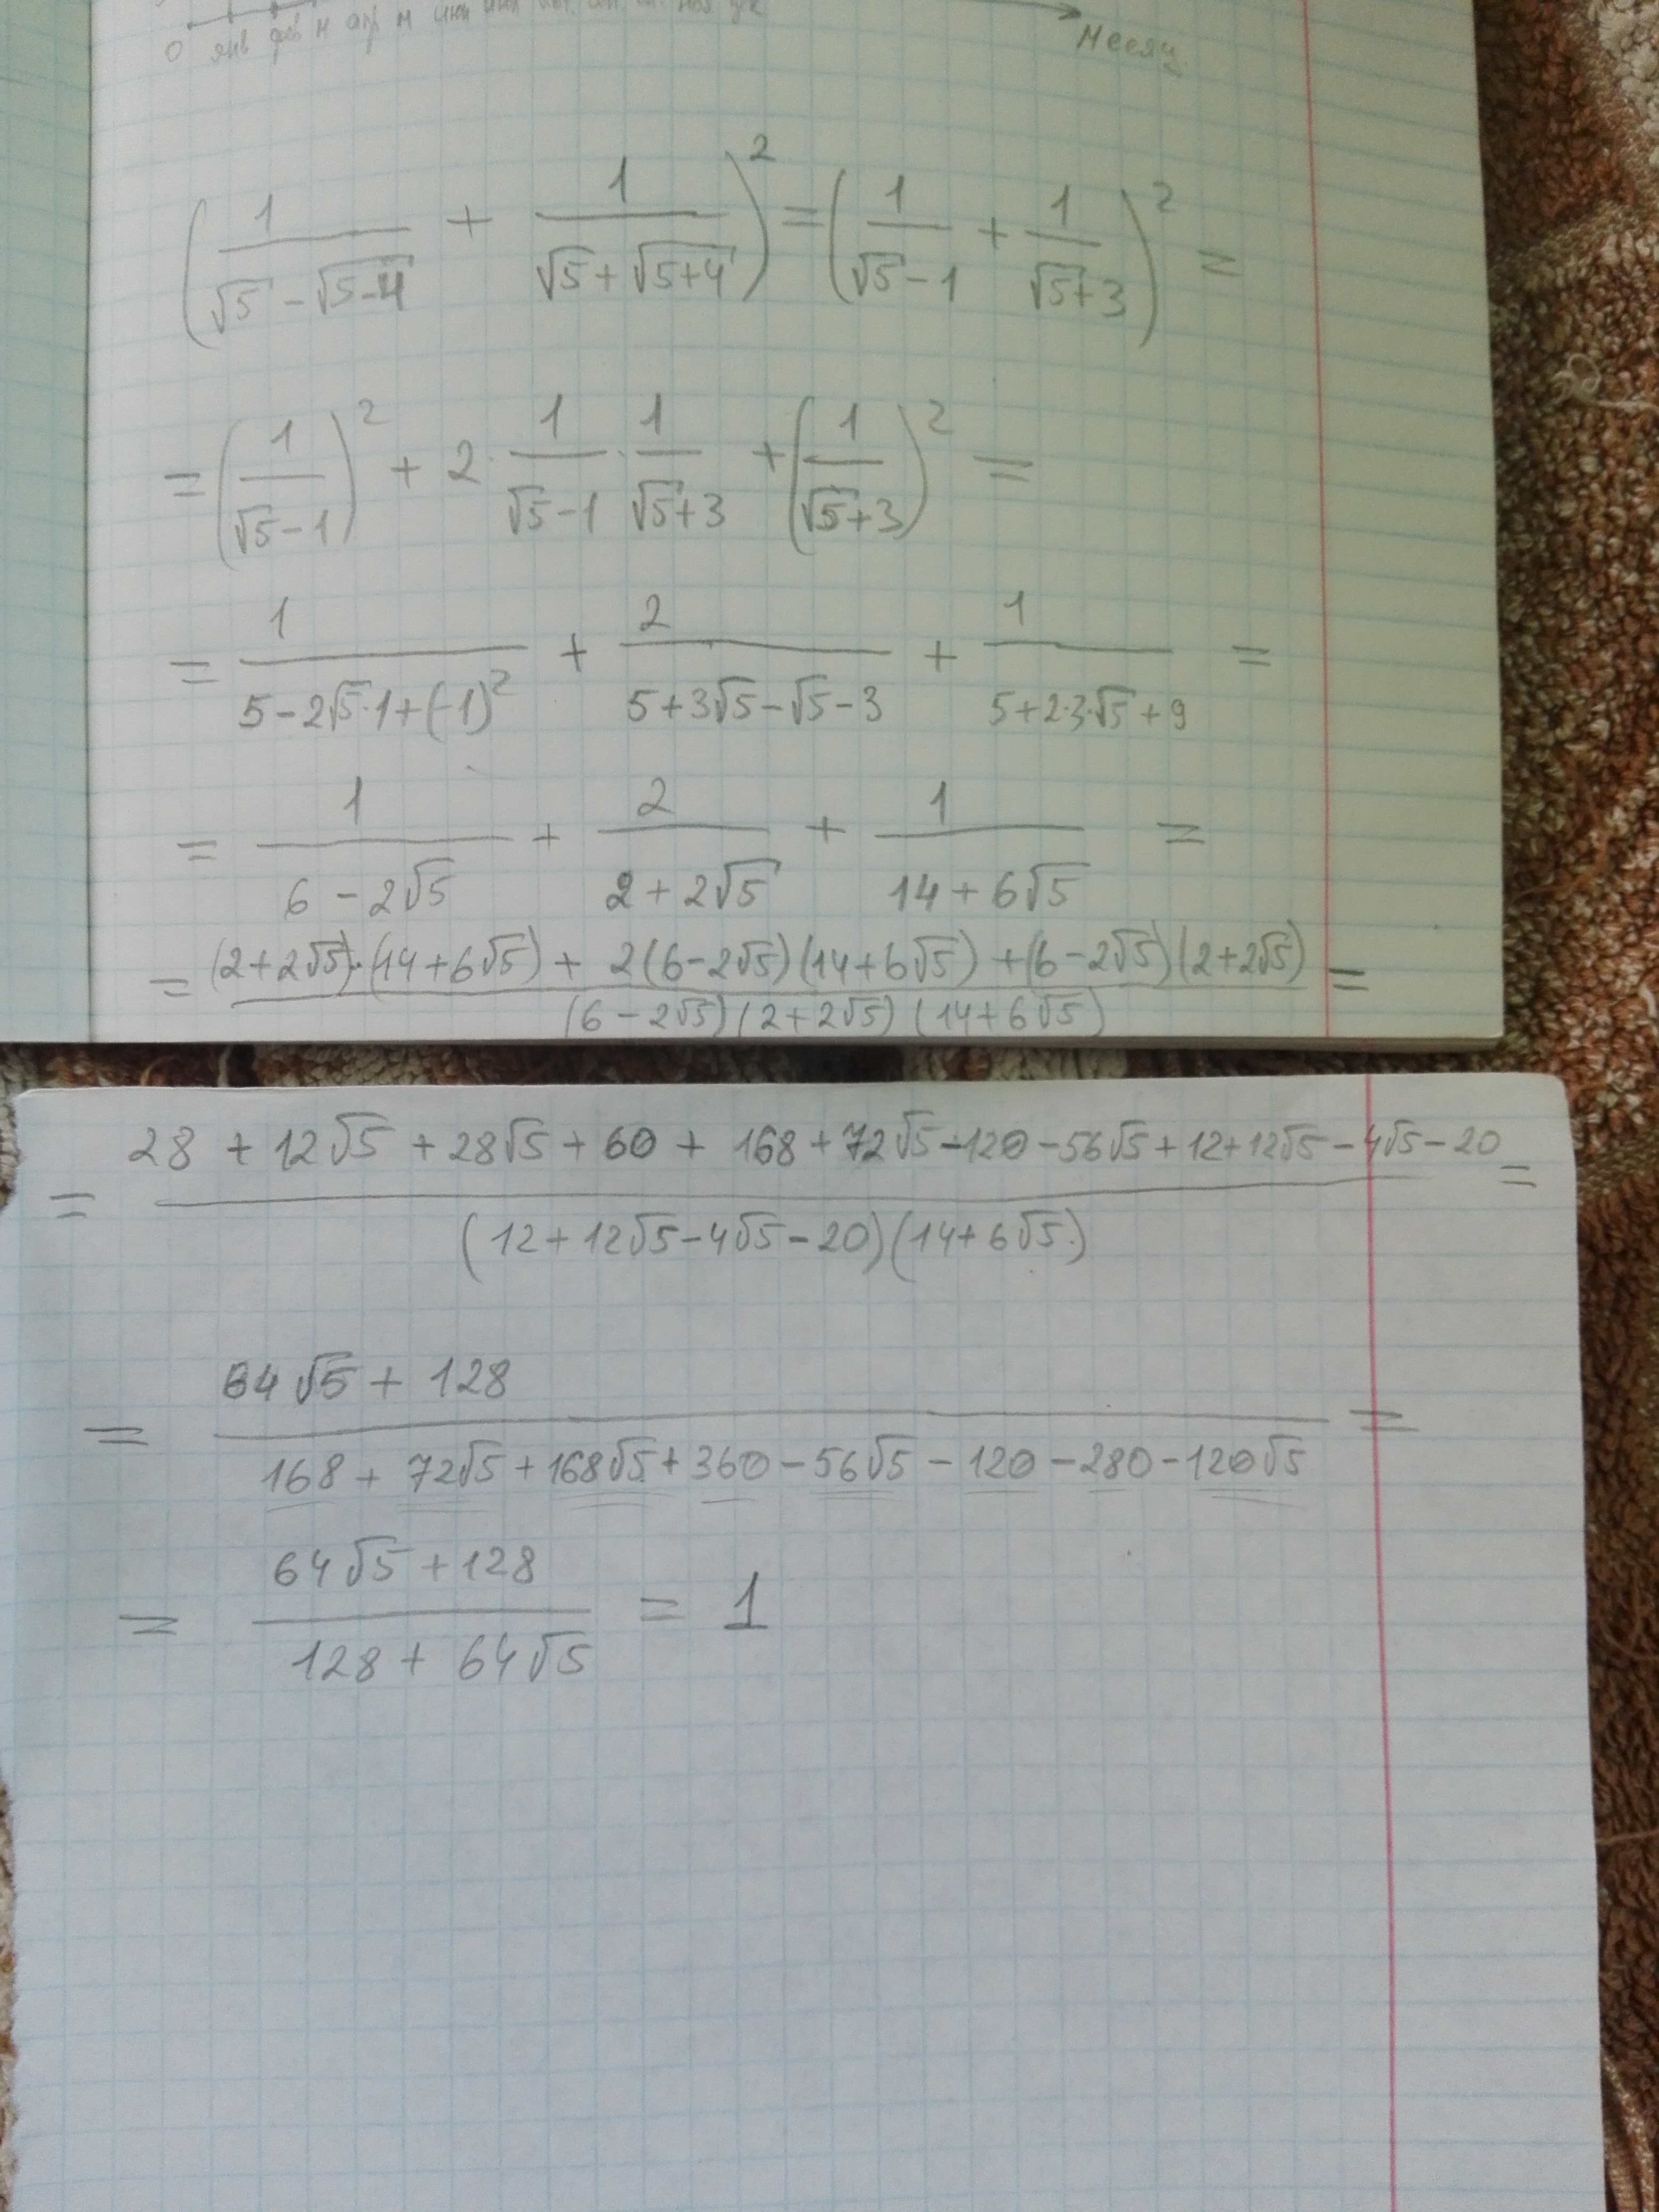 0 янв фев м апр м июн
Месяц
(1/(√5 - √(5-4)) + 1/(√5 + √(5+4)))² = (1/(√5 - 1) + 1/(√5 + 3))² =
= (1/(√5 - 1))² + 2 · 1/(√5 - 1) · 1/(√5 + 3) + (1/(√5 + 3))² =
= 1/(5 - 2√5·1 + (-1)²) + 2/(5 + 3√5 - √5 - 3) + 1/(5 + 2·3·√5 + 9) =
= 1/(6 - 2√5) + 2/(2 + 2√5) + 1/(14 + 6√5) =
= ((2+2√5)·(14+6√5) + 2(6-2√5)(14+6√5) + (6-2√5)(2+2√5))/((6-2√5)(2+2√5)(14+6√5)) =
= (28 + 12√5 + 28√5 + 60 + 168 + 72√5 - 120 - 56√5 + 12 + 12√5 - 4√5 - 20)/((12 + 12√5 - 4√5 - 20)(14 + 6√5)) =
= (64√5 + 128)/(168 + 72√5 + 168√5 + 360 - 56√5 - 120 - 280 - 120√5) =
= (64√5 + 128)/(128 + 64√5) = 1